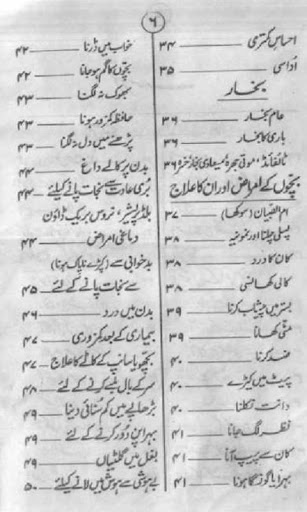 ۶
احساسِ کمتری ۳۴
اُداسی ۳۵
بخار
عام بخار ۳۶
باری کا بخار ۳۶
ٹائیفائڈ، موتی جھرہ، میعادی بخار، خسرہ ۳۶
بچّوں کے امراض اور ان کا علاج
ام الصبیان (سوکھا) ۳۷
پسلی چلنا اور نمونیہ ۳۸
کان کا درد ۳۸
کالی کھانسی ۳۸
بستر میں پیشاب کرنا ۳۹
مٹی کھانا ۳۹
ضد کرنا ۴۰
پیٹ میں کیڑے ۴۰
دانت نکلنا ۴۰
نظر لگ جانا ۴۱
کان سے پیپ آنا ۴۱
بہرا یا گونگا ہونا ۴۱
خواب میں ڈرنا ۴۲
بچّوں کا گم ہو جانا ۴۲
بھوک نہ لگنا ۴۳
حافظہ کمزور ہونا ۴۳
پڑھنے میں دل نہ لگنا ۴۳
بدن پر کالے داغ ۴۴
بُری عادت سے نجات پانے کیلئے ۴۴
بلڈ پریشر، نروس بریک ڈاؤن
دماغی امراض ۴۴
بدخوابی سے (کپڑے ناپاک ہونا)
سے نجات پانے کے لئے ۴۵
بدن میں درد ۴۶
بیماری کے بعد کمزوری ۴۷
بچھو یا سانپ کے کاٹے کا علاج ۴۷
سر کے بال لمبے کرنے کے لئے ۴۸
بڑھاپے میں کم سُنائی دینا ۴۹
بہرا پن دُور کرنے کے لئے ۴۹
بغل میں گلٹیاں ۴۹
بے ہوشی سے ہوش میں لانے کیلئے ۵۰